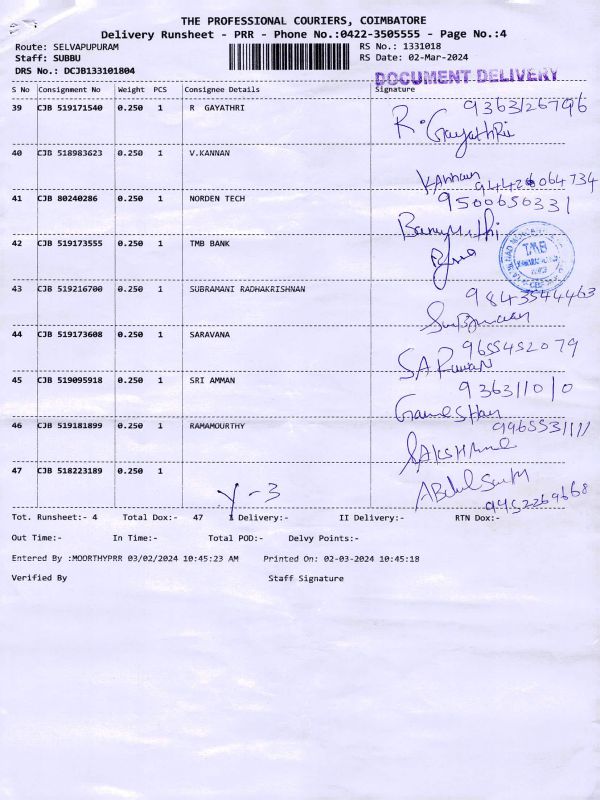 THE PROFESSIONAL COURIERS, COIMBATORE
Delivery Runsheet - PRR - Phone No.:0422-3505555 - Page No.:4
Route: SELVAPUPURAM RS No.: 1331018
Staff: SUBBU RS Date: 02-Mar-2024
DRS No.: DCJB133101804
DOCUMENT DELIVERY
S No Consignment No Weight PCS Consignee Details Signature
9363126796
39 CJB 519171540 0.250 1 R GAYATHRI
R. Gayathri
40 CJB 518983623 0.250 1 V.KANNAN
V.Kannan
9500650331
41 CJB 80240286 0.250 1 NORDEN TECH
42 CJB 519173555 0.250 1 TMB BANK
TMB
43 CJB 519216700 0.250 1 SUBRAMANI RADHAKRISHNAN
9843544463
44 CJB 519173608 0.250 1 SARAVANA
9655452079
45 CJB 519095918 0.250 1 SRI AMMAN
46 CJB 519181899 0.250 1 RAMAMOURTHY
47 CJB 518223189 0.250 1
Y-3
9952269668
Tot. Runsheet:- 4 Total Dox:- 47 I Delivery:- II Delivery:- RTN Dox:-
Out Time:- In Time:- Total POD:- Delvy Points:-
Entered By :MOORTHYPRR 03/02/2024 10:45:23 AM Printed On: 02-03-2024 10:45:18
Verified By Staff Signature